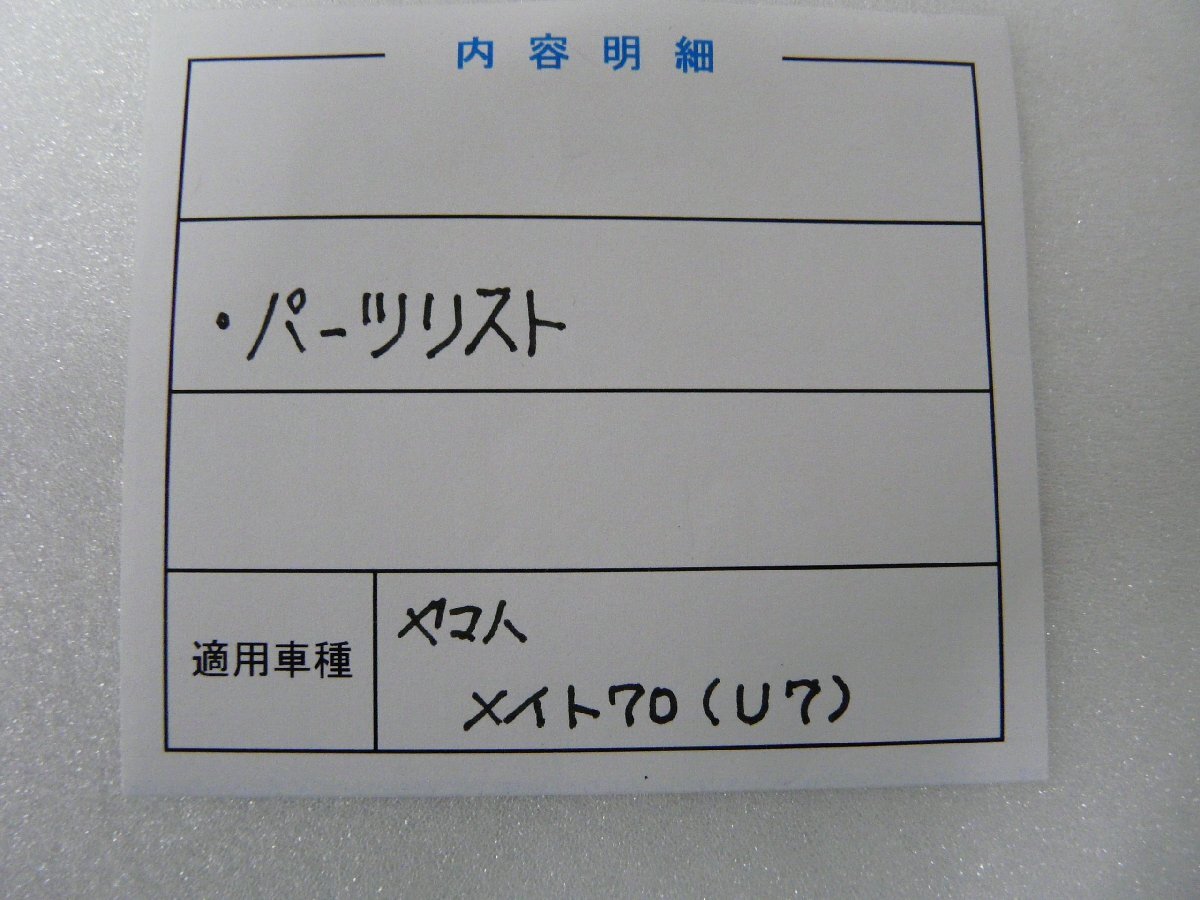 内容明細
・パーツリスト
適用車種
ヤマハ
メイト70(U7)